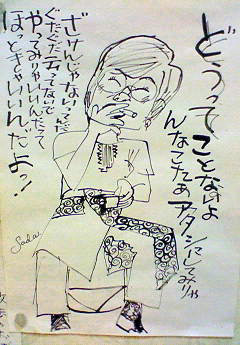 どうってことないよ
んなこたぁアタシにしてみりゃ
ざけんじゃないってんだ
ぐだぐだ言ってないで
やってみりゃいいんだって
ほっときゃいいんだよ!
Sada